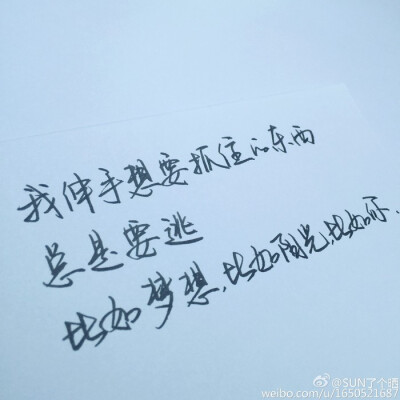 我伸手想要抓住的东西
总是要逃
比如梦想,比如阳光,比如你.
@SUN了个晒
weibo.com/u/1650521687